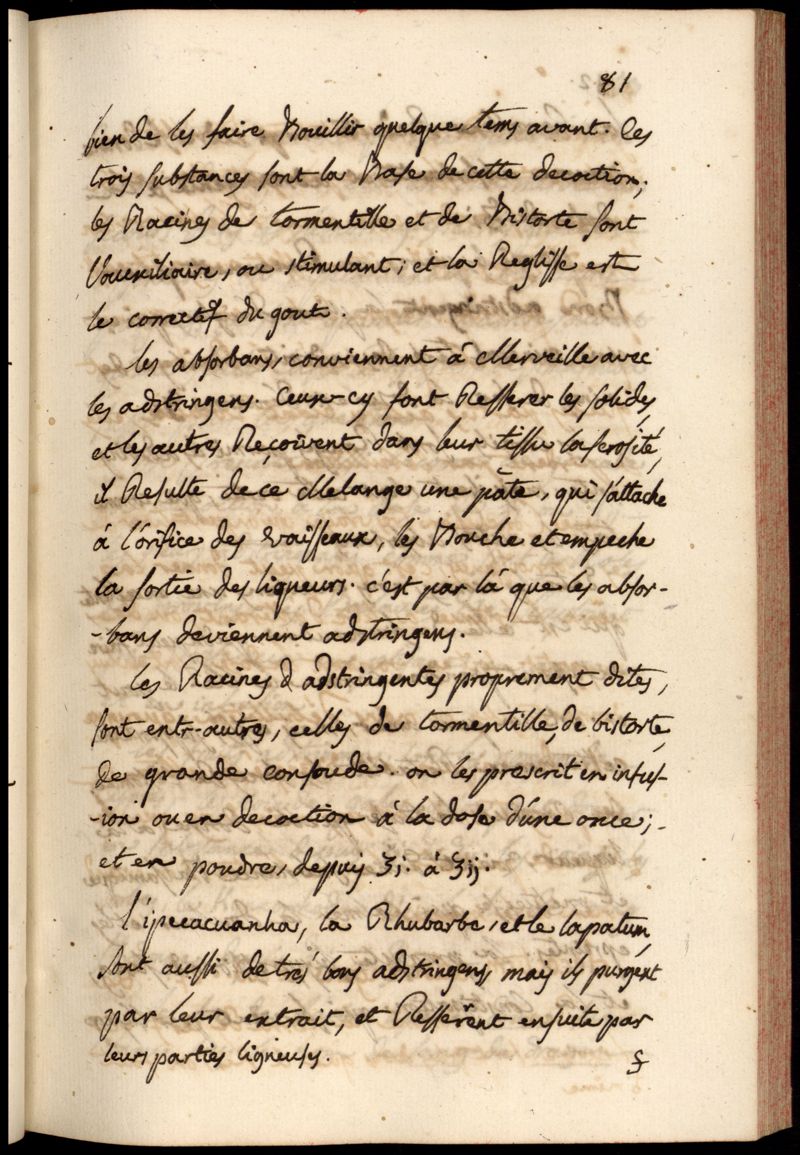 81
bien de les faire Bouillir quelque tems avant. Ces
trois substances sont la Base de cette decoction;
les Racines de tormentille et de Bistorte sont
l'auxiliaire, ou stimulant; et la Reglisse est
le correctif du gout.
les absorbans, conviennent á Merveille avec
les adstringens. Ceux-cy font Resserer les solides,
et les autres Reçoivent dans leur tissu la serosité,
il Resulte de ce Melange une pâte, qui s'attache
á l'órifice des vaisseaux, les Bouche et empeche
la sortie des liqueurs. c'est par lá que les absor-
-bans deviennent adstringens.
les Racines adstringentes proprement dites,
sont entr-autres, celles de tormentille, de bistorte,
de grande consoude. on les prescrit en infus-
-ion ou en decoction á la dose d'úne once;
et en poudre, depuis ʒj. á ʒij.
l'ipecacuanha, la Rhubarbe, et le lapatum,
sont aussi de trés bons adstringens, mais ils purgent
par leur extrait, et Resserent ensuite par
leurs parties ligneuses.